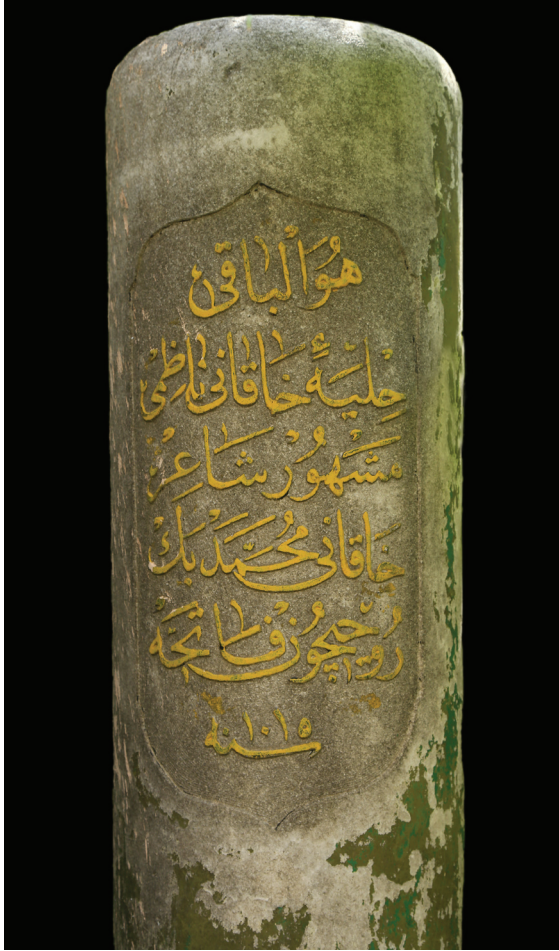 هُوَ الْباقی
حِلْيَهٔ خَاقَانی نَاظِمی
مَشْهُورْ شَاعِرْ
خَاقَانی مُحَمَّدْ بَكْ
رُوحِیچُونْ فَاتِحَه
سنه ١٠١٥